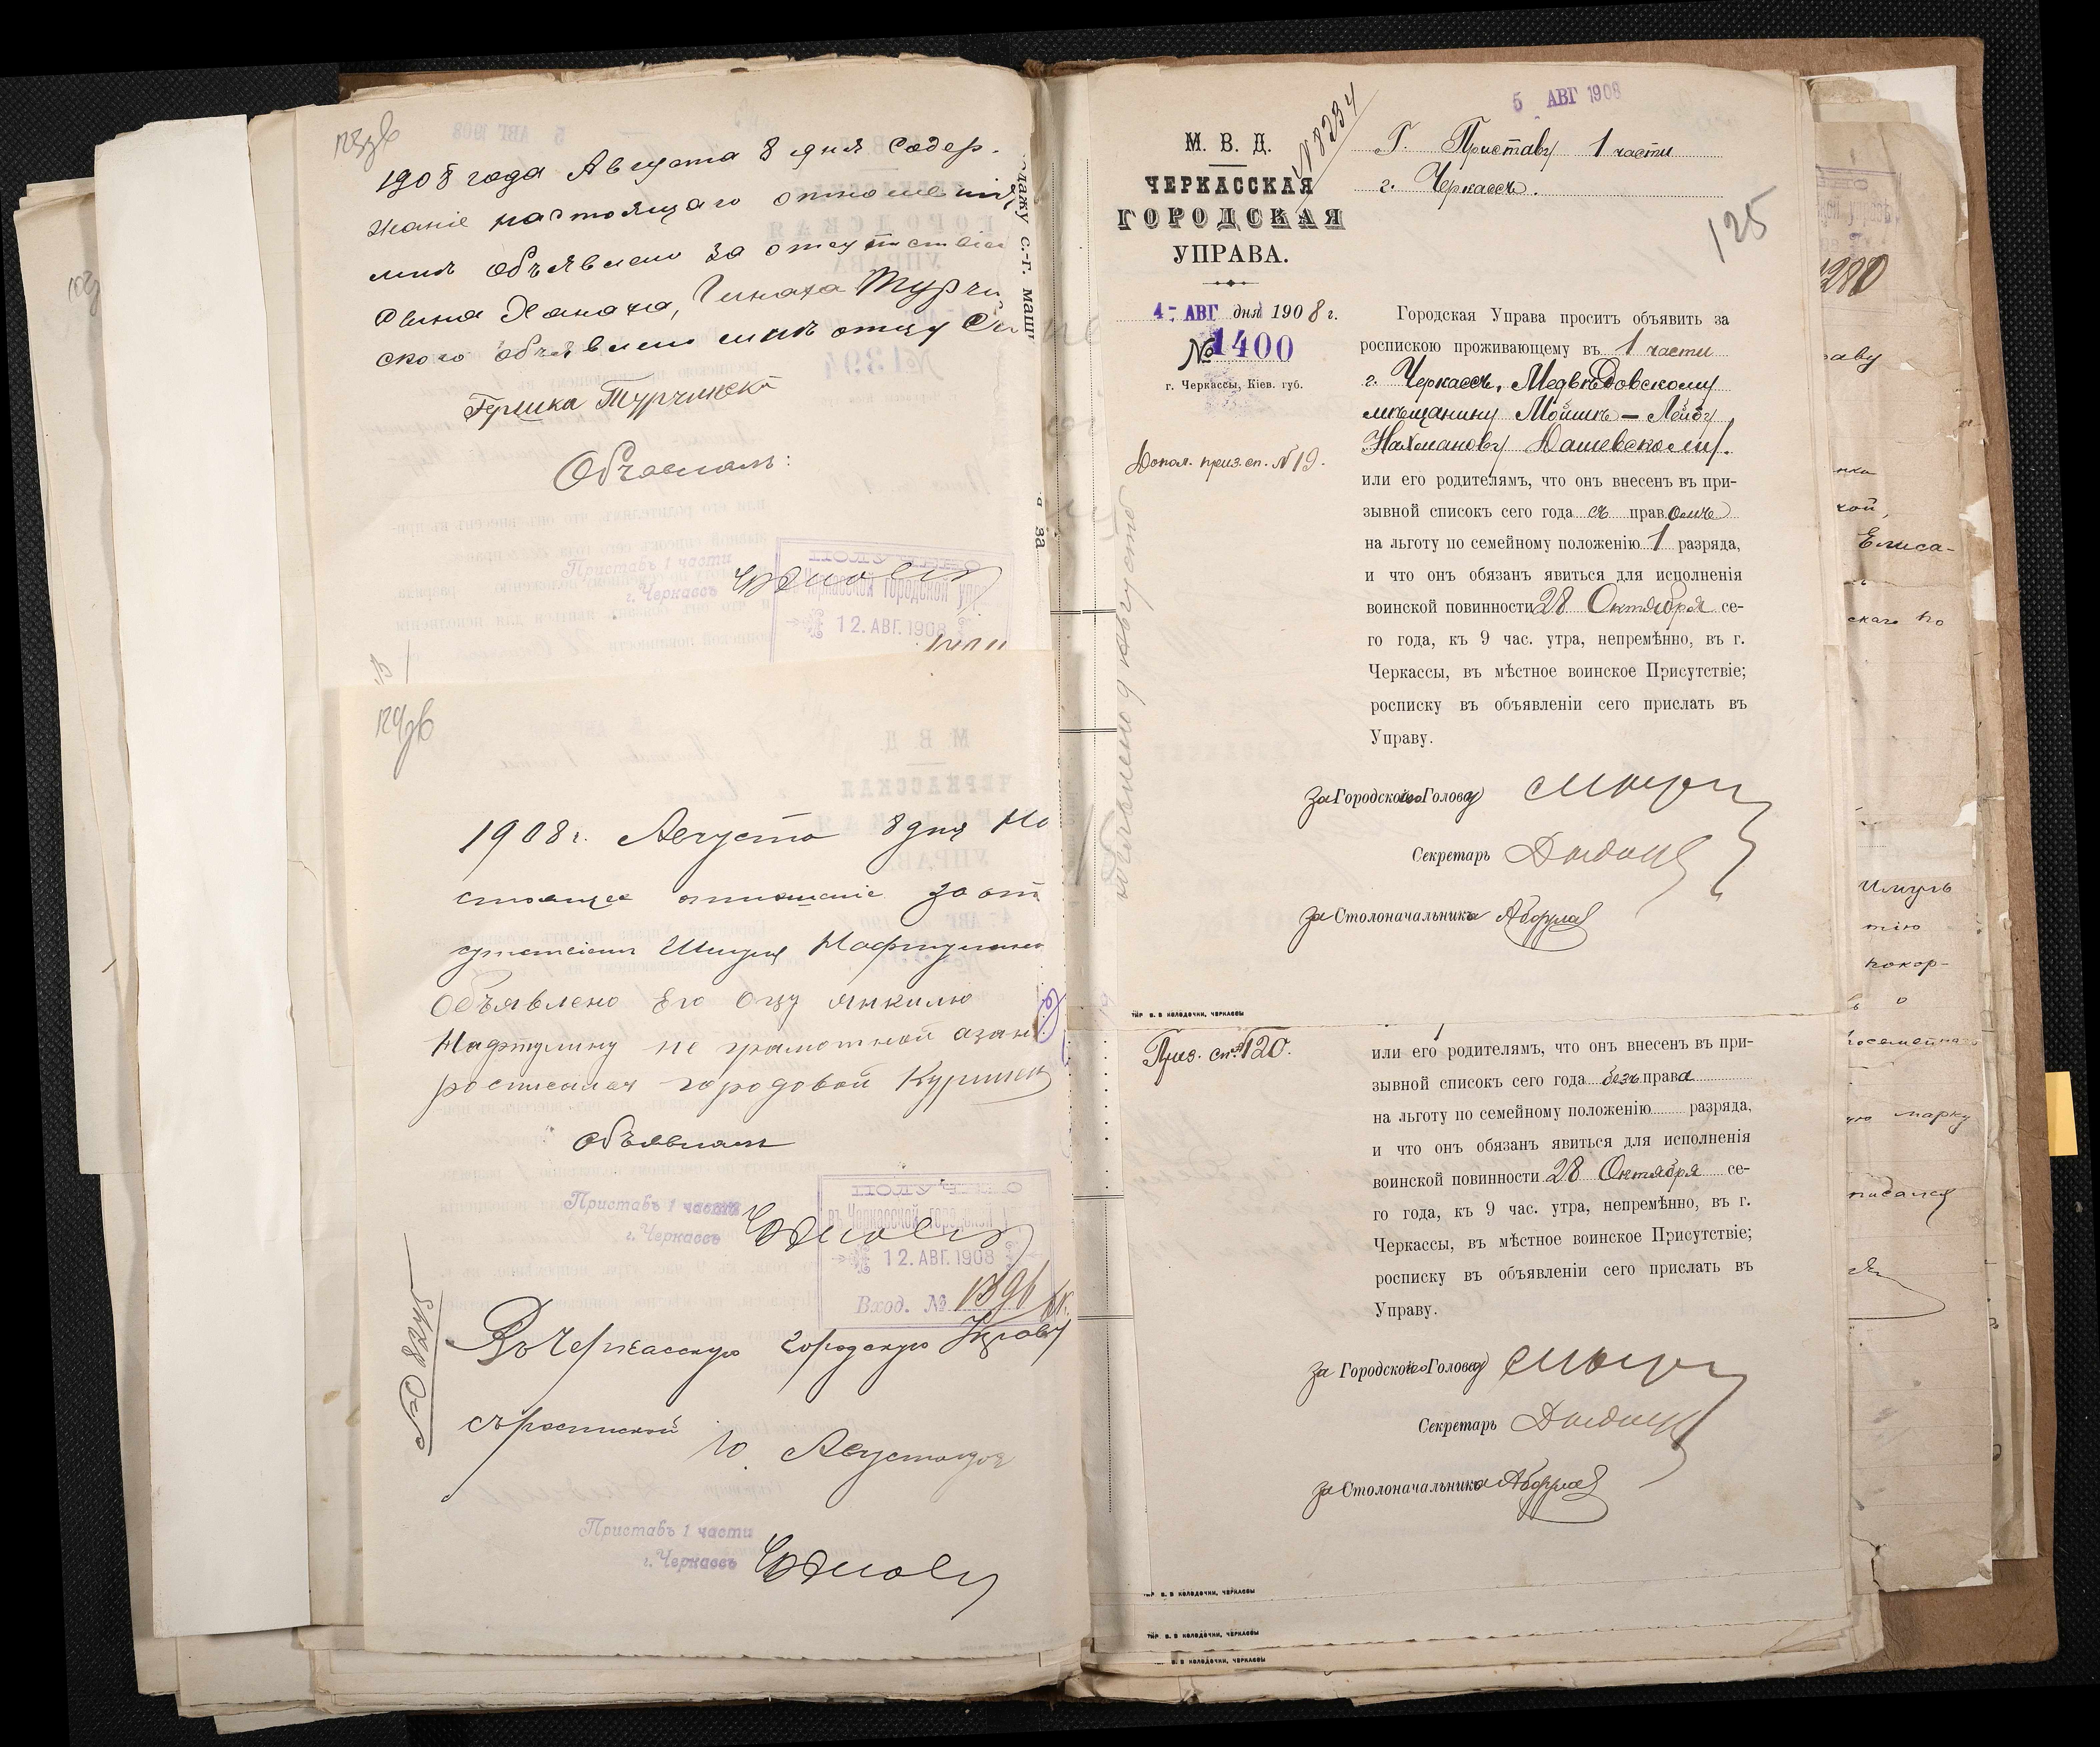 123об
1908 года Августа 8 дня Содер-
жаніе настоящаго отношенія
мнѣ объявлено за отсутствіем
Сына Ханаха,
ского объявлено мнѣ отцу
Гершка Турчинскій
Объявилъ:
Приставъ 1 части
г. Черкассъ
ПОЛУЧЕНО
Черкасской городской упр
12. АВГ. 1908
124об
1908 г. Августа 8 дня На
стоящее отношеніе за от
сутствіем Шмуля Нафтулина
Объявлено Его Отцу Янкилю
Нафтулину не грамотной а за него
росписался городовой
Объявилъ
Приставъ 1 части
г. Черкассъ
ПОЛУЧЕНО
въ Черкасской городской у
12. АВГ. 1908
Вход. № 1396
№ 8245
Въ Черкасскую Городскую Управу
съ роспиской
10 Августа 1908
Приставъ 1 части
г. Черкассъ
одажу с.-г. маши
за
5 АВГ 1908
№ 8234
М. В. Д.
ЧЕРКАССКАЯ
ГОРОДСКАЯ
УПРАВА.
4- АВГ дня 1908 г.
№ 1400
г. Черкассы, Кіев. губ.
Допол. приз. сп. № 19.
Г. Приставу 1 части
г. Черкассъ.
125
Городская Управа проситъ объявить за
роспискою проживающему въ 1 части
г. Черкассъ, Медвѣдовскому
мѣщанину Мойшкѣ-Лейбѣ
Нахманову Дашевскому.
или его родителямъ, что онъ внесенъ въ при-
зывной списокъ сего года съ правомъ
на льготу по семейному положенію 1 разряда,
и что онъ обязанъ явиться для исполненія
воинской повинности 28 Октября се-
го года, къ 9 час. утра, непремѣнно, въ г.
Черкассы, въ мѣстное воинское Присутствіе;
росписку въ объявленіи сего прислать въ
Управу.
за Городского Голову
Секретарь
за Столоначальника
ТИР В. В КОЛОДОЧКИ, ЧЕРКАССЫ
Приз. сп. № 120.
или его родителямъ, что онъ внесенъ въ при-
зывной списокъ сего года безъ права
на льготу по семейному положенію разряда,
и что онъ обязанъ явиться для исполненія
воинской повинности 28 Октября се-
го года, къ 9 час. утра, непремѣнно, въ г.
Черкассы, въ мѣстное воинское Присутствіе;
росписку въ объявленіи сего прислать въ
Управу.
за Городского Голову
Секретарь
за Столоначальника
ТИР В. В КОЛОДОЧКИ, ЧЕРКАССЫ
ТИР. В. В КОЛОДОЧКИ, ЧЕРКАССЫ
В. В КОЛОДОЧКИ, ЧЕРКАССЫ
1280
раву
кой,
Елиса-
скаго по
Шмуль
тію
покор-
ъ о
посемейнаго
ую марку
писался